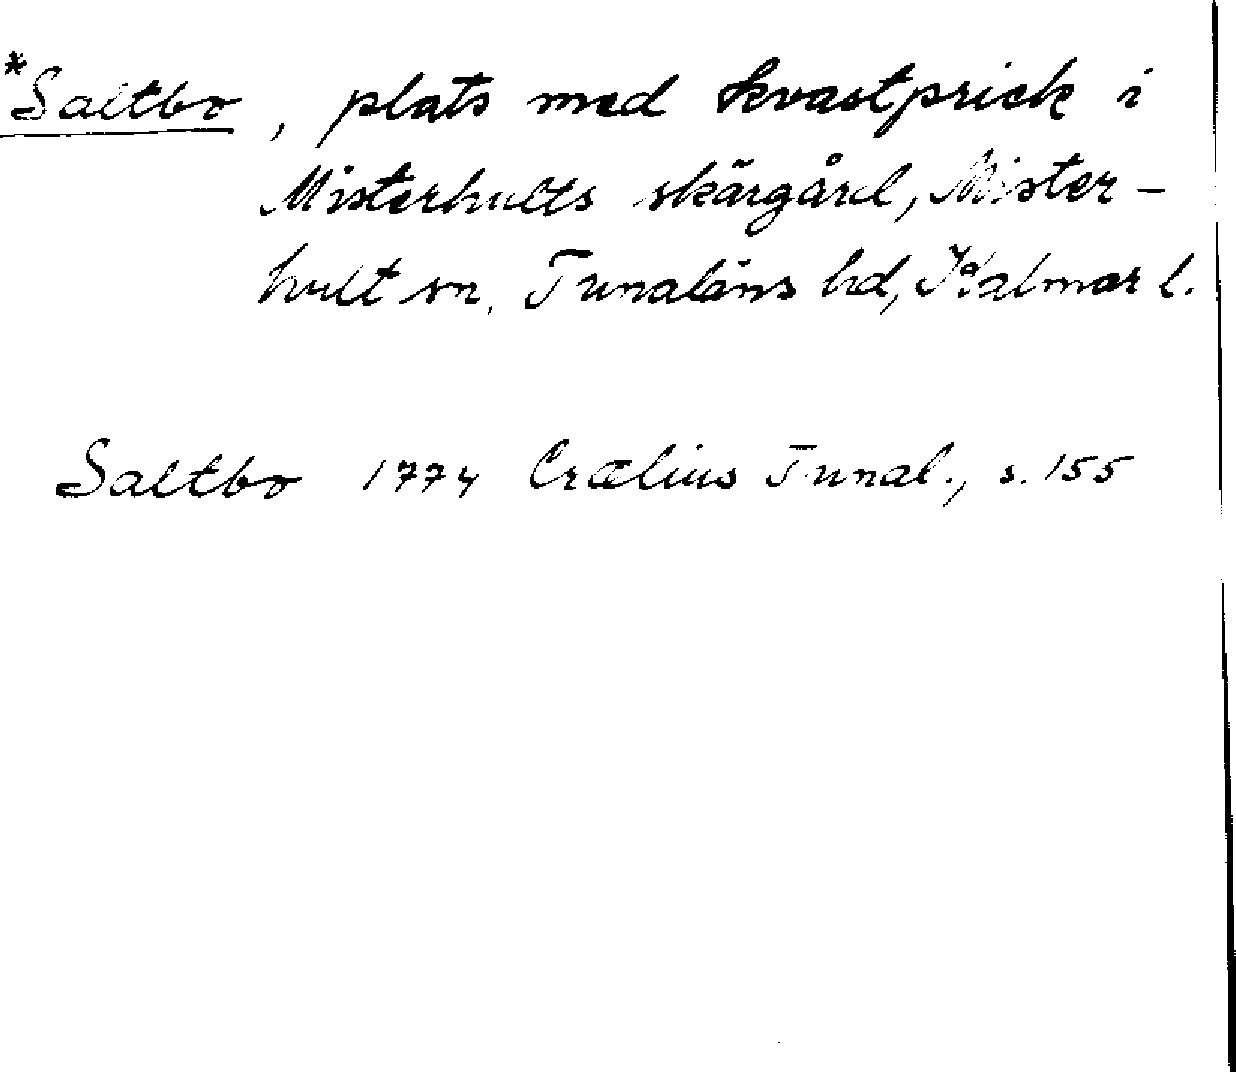 *Saltbo, plats med kvastprick i
Misterhults skärgård, Mister-
hult sn, Tunaläns hd, Kalmar l.
Saltbo 1774 Crælius Tunal., s. 155